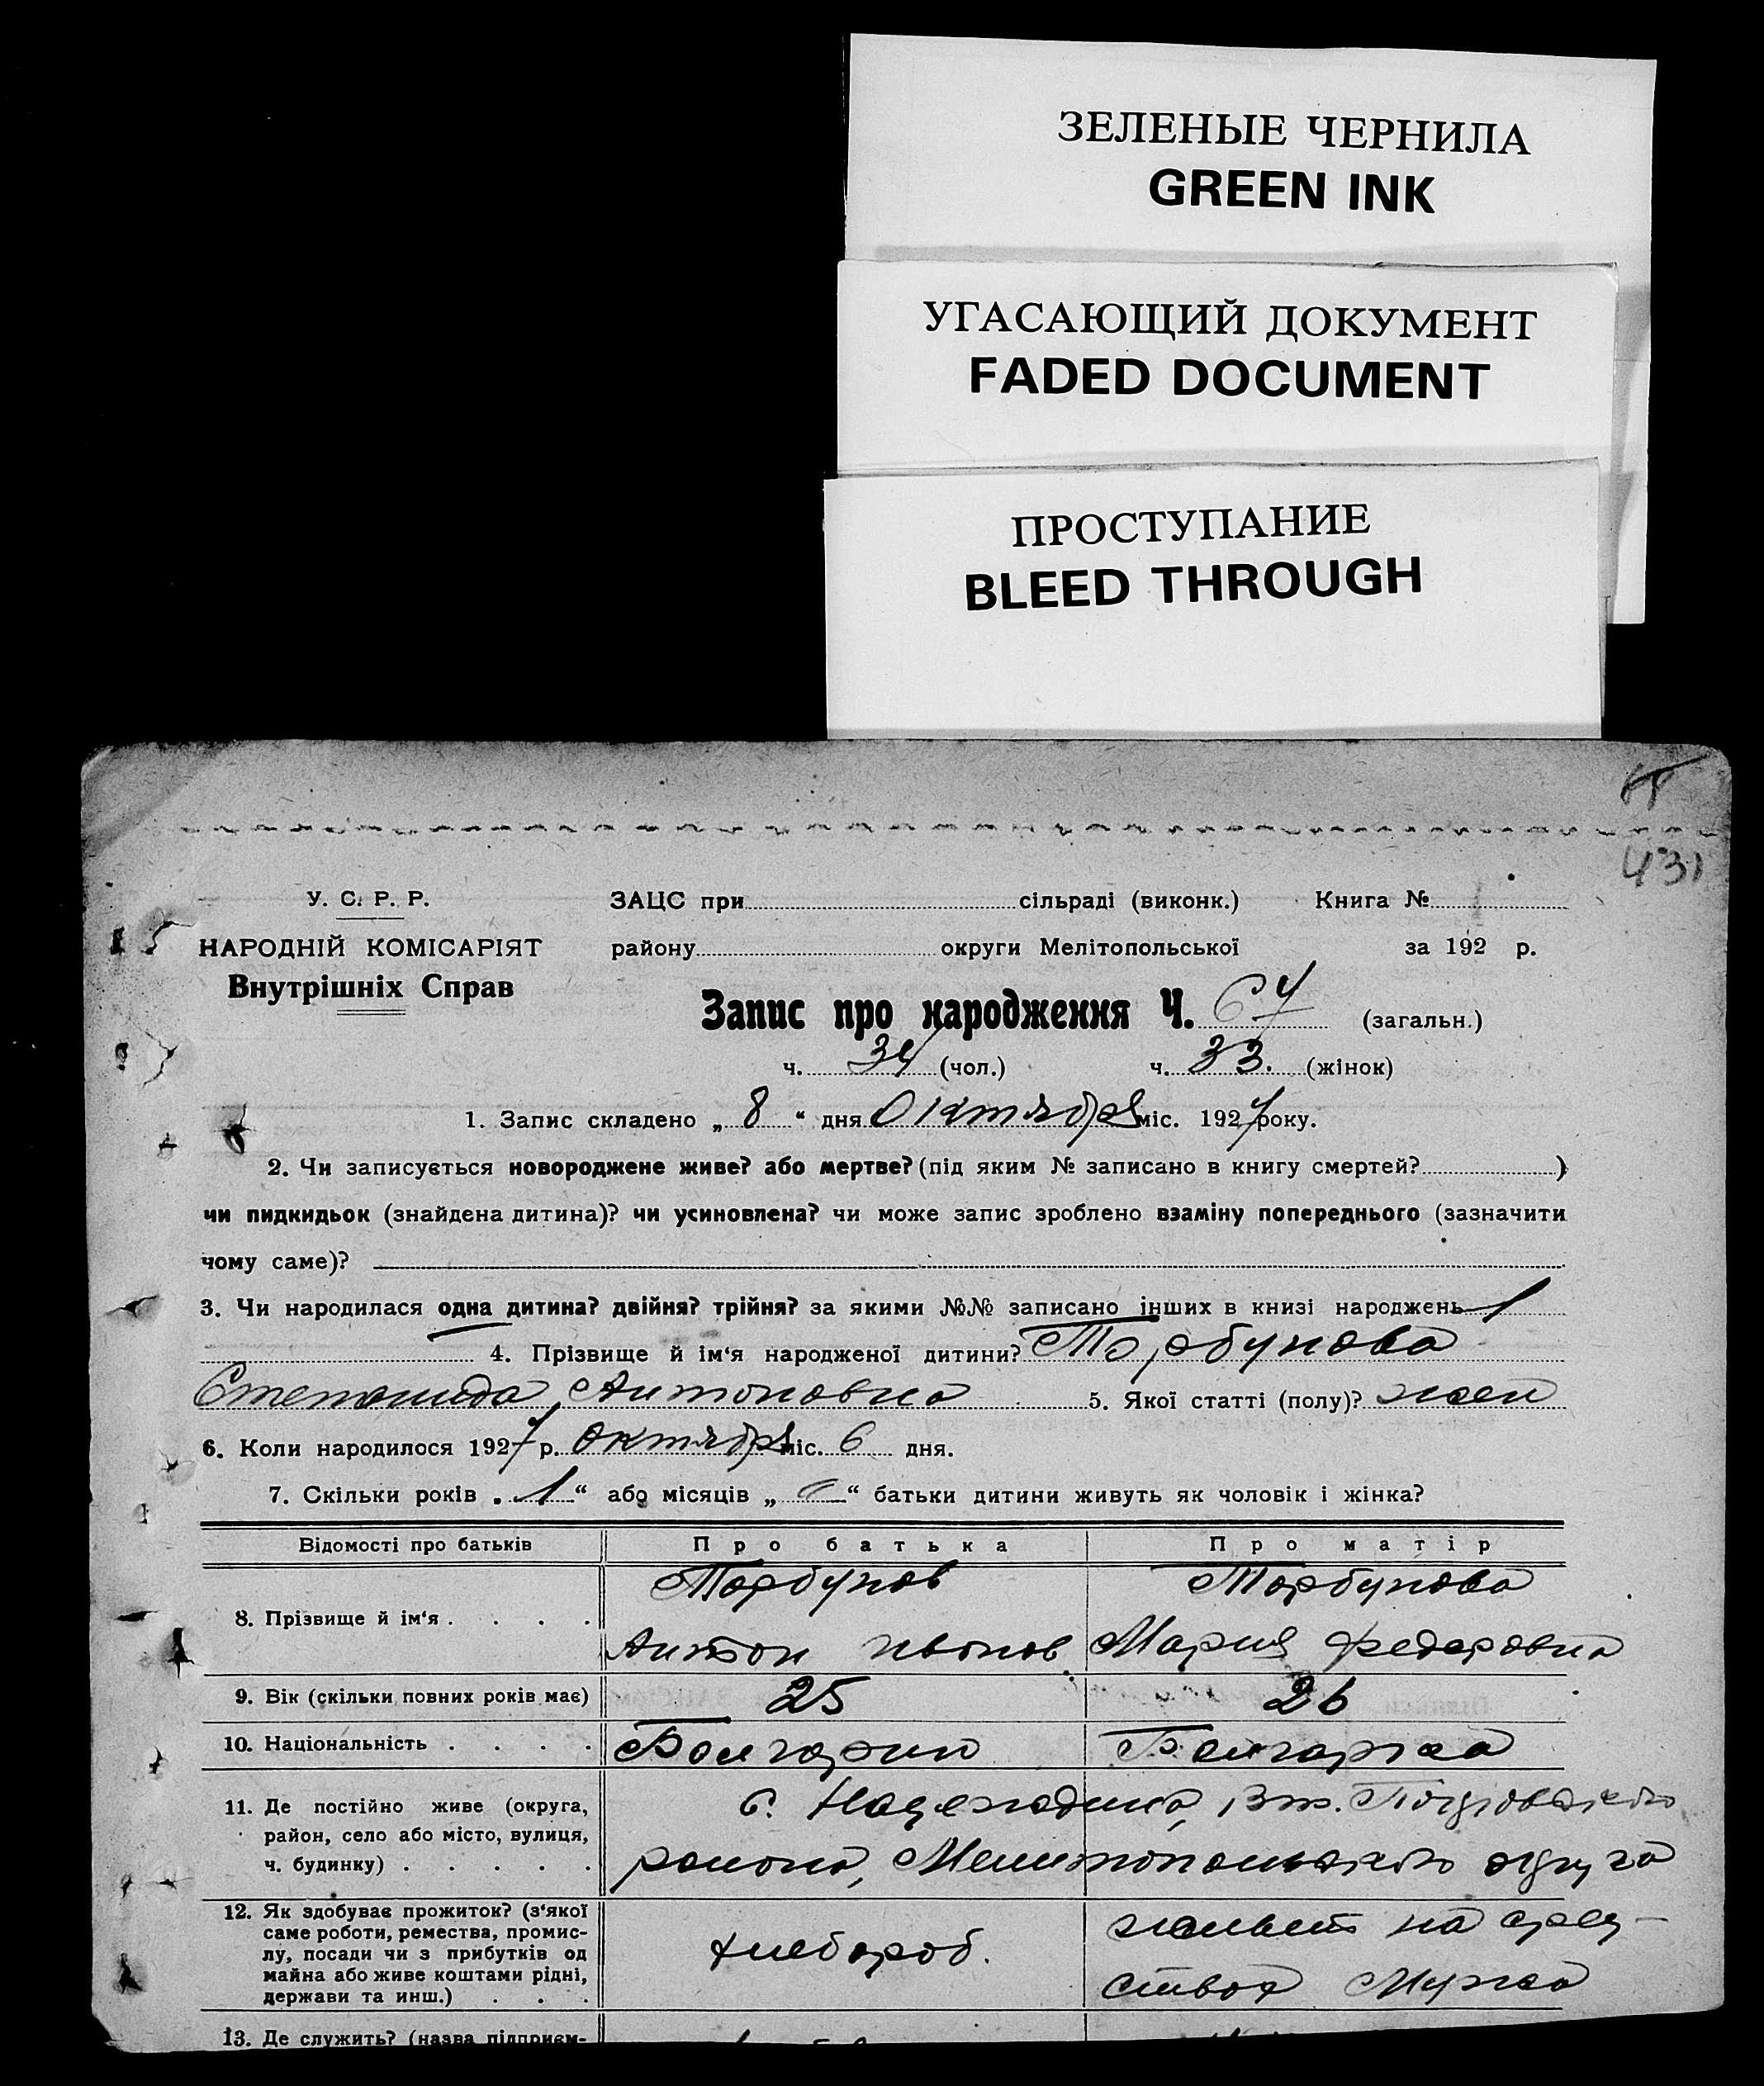 ЗЕЛЕНЫЕ ЧЕРНИЛА
GREEN INK
УГАСАЮЩИЙ ДОКУМЕНТ
FADED DOCUMENT
ПРОСТУПАНИЕ
BLEED THROUGH
431
У. С. Р. Р. ЗАЦС при сільраді (виконк.) Книга №
НАРОДНІЙ КОМІСАРІЯТ району округи Мелітопольської за 192 р.
Внутрішніх Справ
Запис про народження Ч. 67 (загальн.)
ч. 34 (чол.) ч. 33. (жінок)
1. Запис складено „ 8 “ дня Октября міс. 1927 року.
2. Чи записується новороджене живе? або мертве? (під яким № записано в книгу смертей? )
чи пидкидьок (знайдена дитина)? чи усиновлена? чи може запис зроблено взаміну попереднього (зазначити
чому саме)?
3. Чи народилася одна дитина? двійня? трійня? за якими №№ записано інших в книзі народжень 1
4. Прізвище й ім‘я народженої дитини? Торбунова
Степанида Антоновна 5. Якої статті (полу)? жен
6. Коли народилося 1927 р. Октября міс. 6 дня.
7. Скільки років „ 1 “ або місяців „ “ батьки дитини живуть як чоловік і жінка?
Відомості про батьків Про батька Про матір
Торбунов Торбунова
8. Прізвище й ім‘я . . . .
Антон Иванов Мария Федоровна
9. Вік (скільки повних років має) 25 26
10. Національність . . . . Болгарин Болгарка
11. Де постійно живе (округа,
район, село або місто, вулиця,
ч. будинку) . . . . .
с. Надеждина,
района, Мелитопольского округа
12. Як здобуває прожиток? (з‘якої
саме роботи, ремества, промис-
лу, посади чи з прибутків од
майна або живе коштами рідні,
держави та инш.) . . .
хлебороб.
живет на сред-
ствах Мужа
13. Де служить? (назва підприєм-